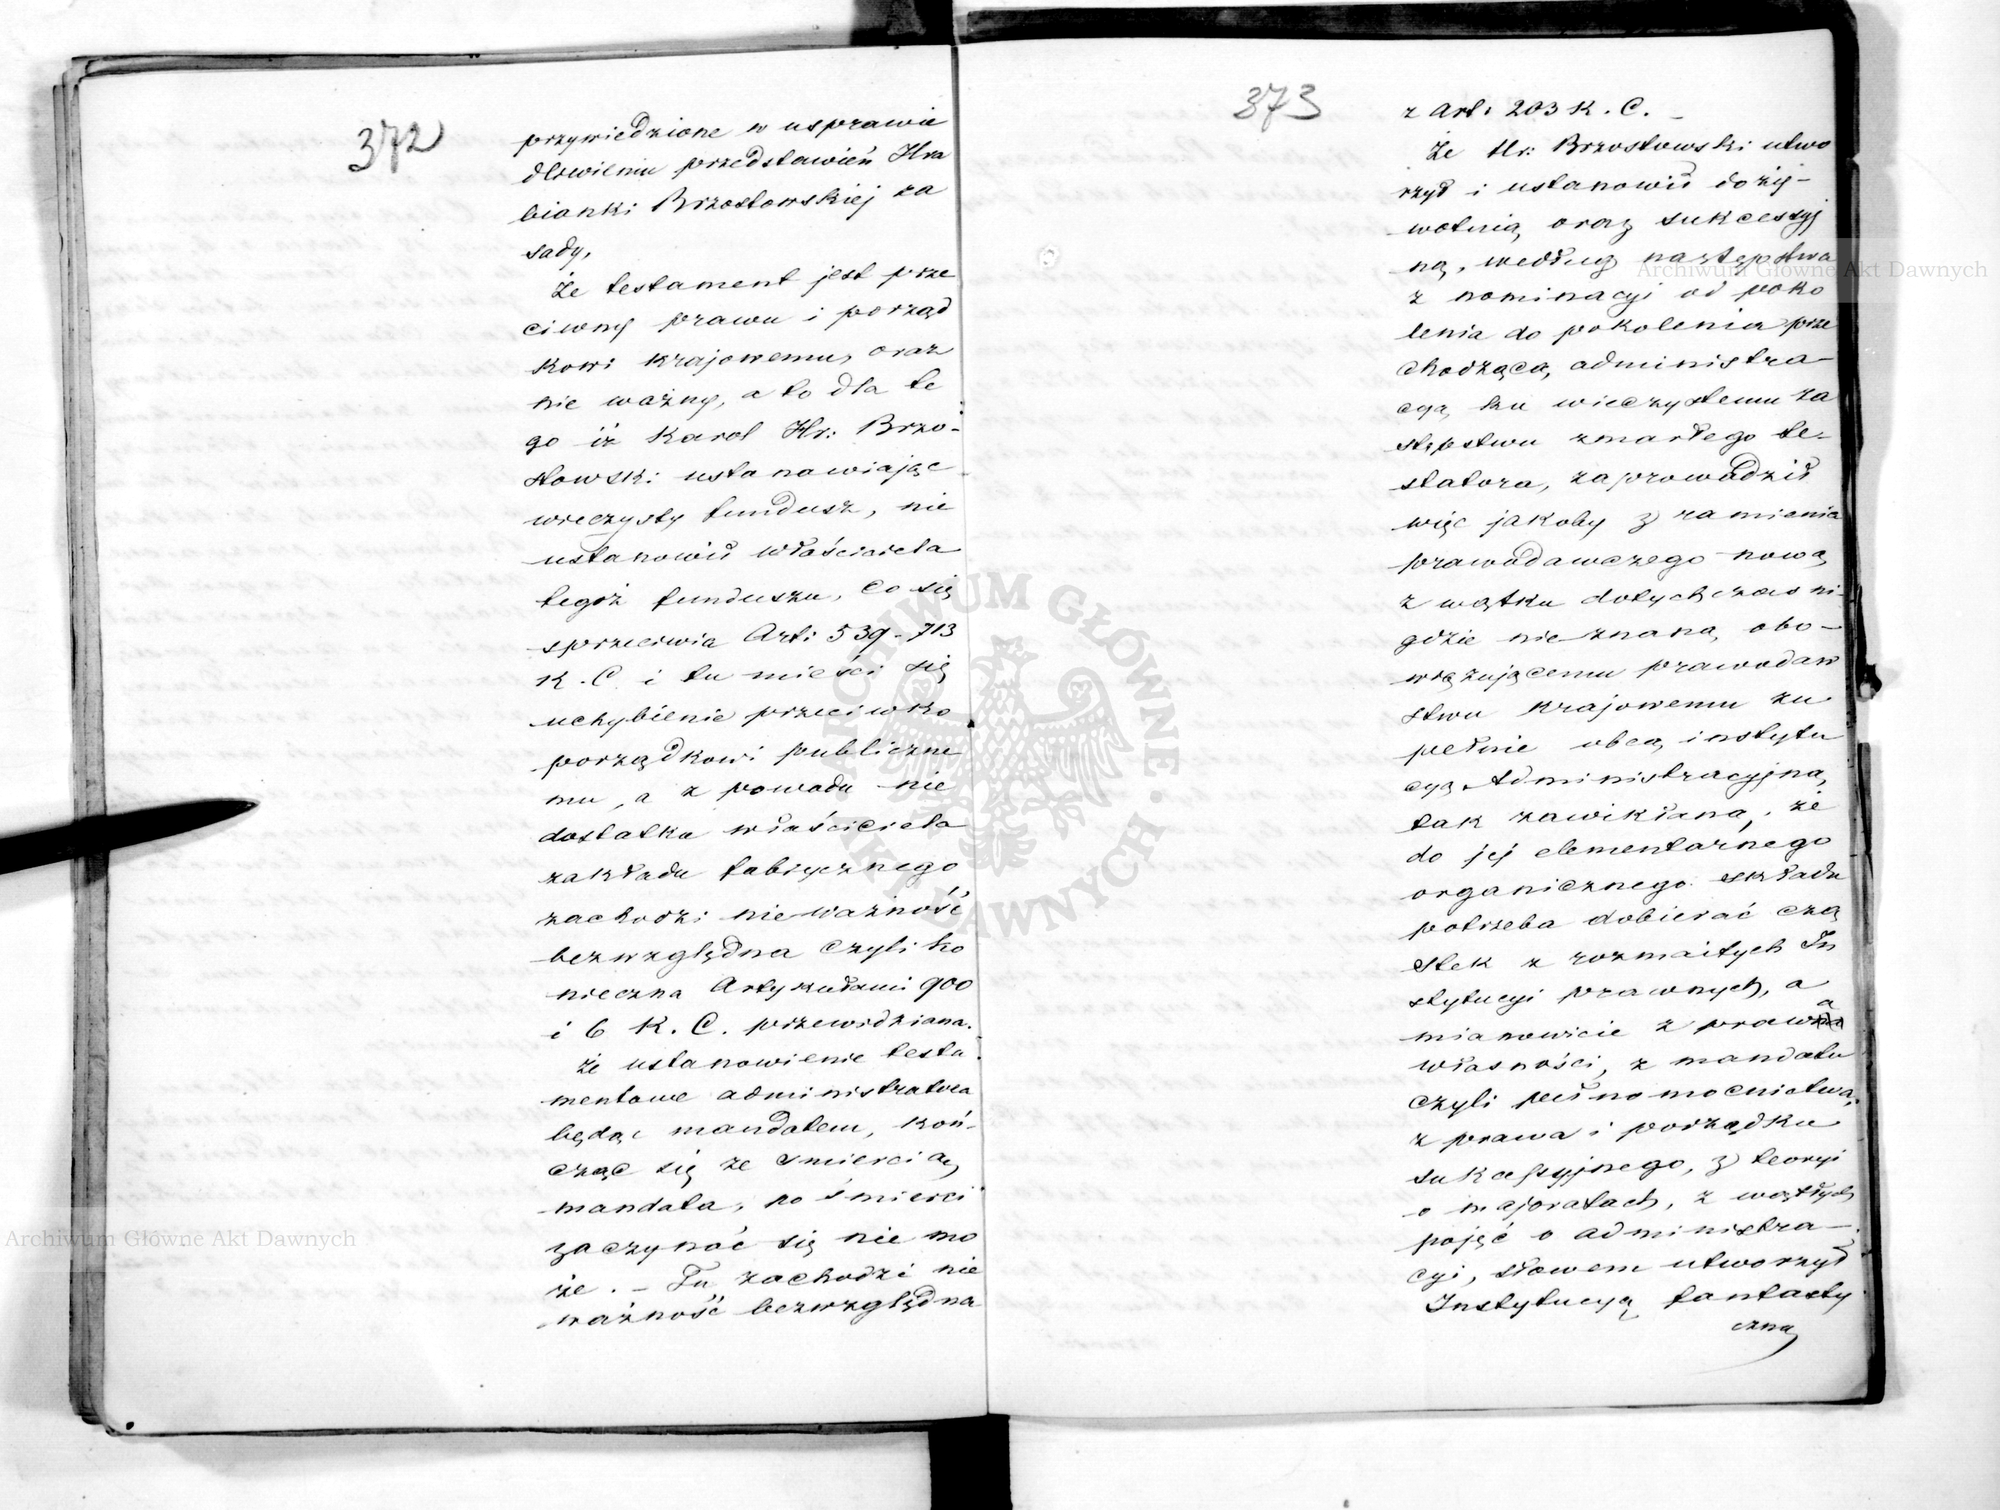 372
przywiedzione w usprawie
dliwieniu przedstawień Hra
bianki Brzostowskiej za
sady,
Że testament jest prze
ciwny prawu i porząd
kowi krajowemu, oraz
nie ważny, a to dla te
go iż Karol Hr: Brzo-
stowski ustanowiając
wieczysty fundusz, nie
ustanowił właściciela
tegoż funduszu, co się
sprzeciwia Art: 539 - 713
K. C. i tu mieści się
uchybienie przeciwko
porządkowi publiczne
mu, a z powodu nie
dostatku właściciela
zakładu fabrycznego
zachodzi nieważność
bezwzględna czyli ko
nieczna Artykułami 900
i 6 K. C. przewidziana.
że ustanowienie testa
mentowe administratora
będąc mandatem, koń-
cząc się ze śmiercią
mandata, po śmierci
zaczynać się nie mo
że. - Tu zachodzi nie
ważność bezwzględna
373
z Art: 203 K. C. -
Że Hr: Brzostowski utwo
rzył i ustanowił doży-
wotnią, oraz sukcessyj
ną, według następstwa
z nominacyi od poko
lenia do pokolenia prze
chodzącą, administra-
cyą ku wieczystemu za
stępstwu zmarłego te-
statora, zaprowadził
więc jakoby z ramienia
prawodawczego nową
z wątku dotychczas ni-
gdzie nieznaną, obo-
wiązującemu prawodaw
stwu krajowemu zu
pełnie obcą instytu
cyą Administracyjną,
tak zawikłaną, że
do jej elementarnego
organicznego składu
potrzeba dobierać czą
stek z rozmaitych In
stytucyi prawnych, a
mianowicie z prawa
własności, z mandatu
czyli pełnomocnictwa,
z prawa i porządku
sukcessyjnego, z teoryi
o majoratach, z wątłych
pojęć o administra-
cyi, słowem utworzył
Instytucyą fantasty
czną
Archiwum Główne Akt Dawnych
Archiwum Główne Akt Dawnych
ARCHIWUM GŁÓWNE AKT DAWNYCH